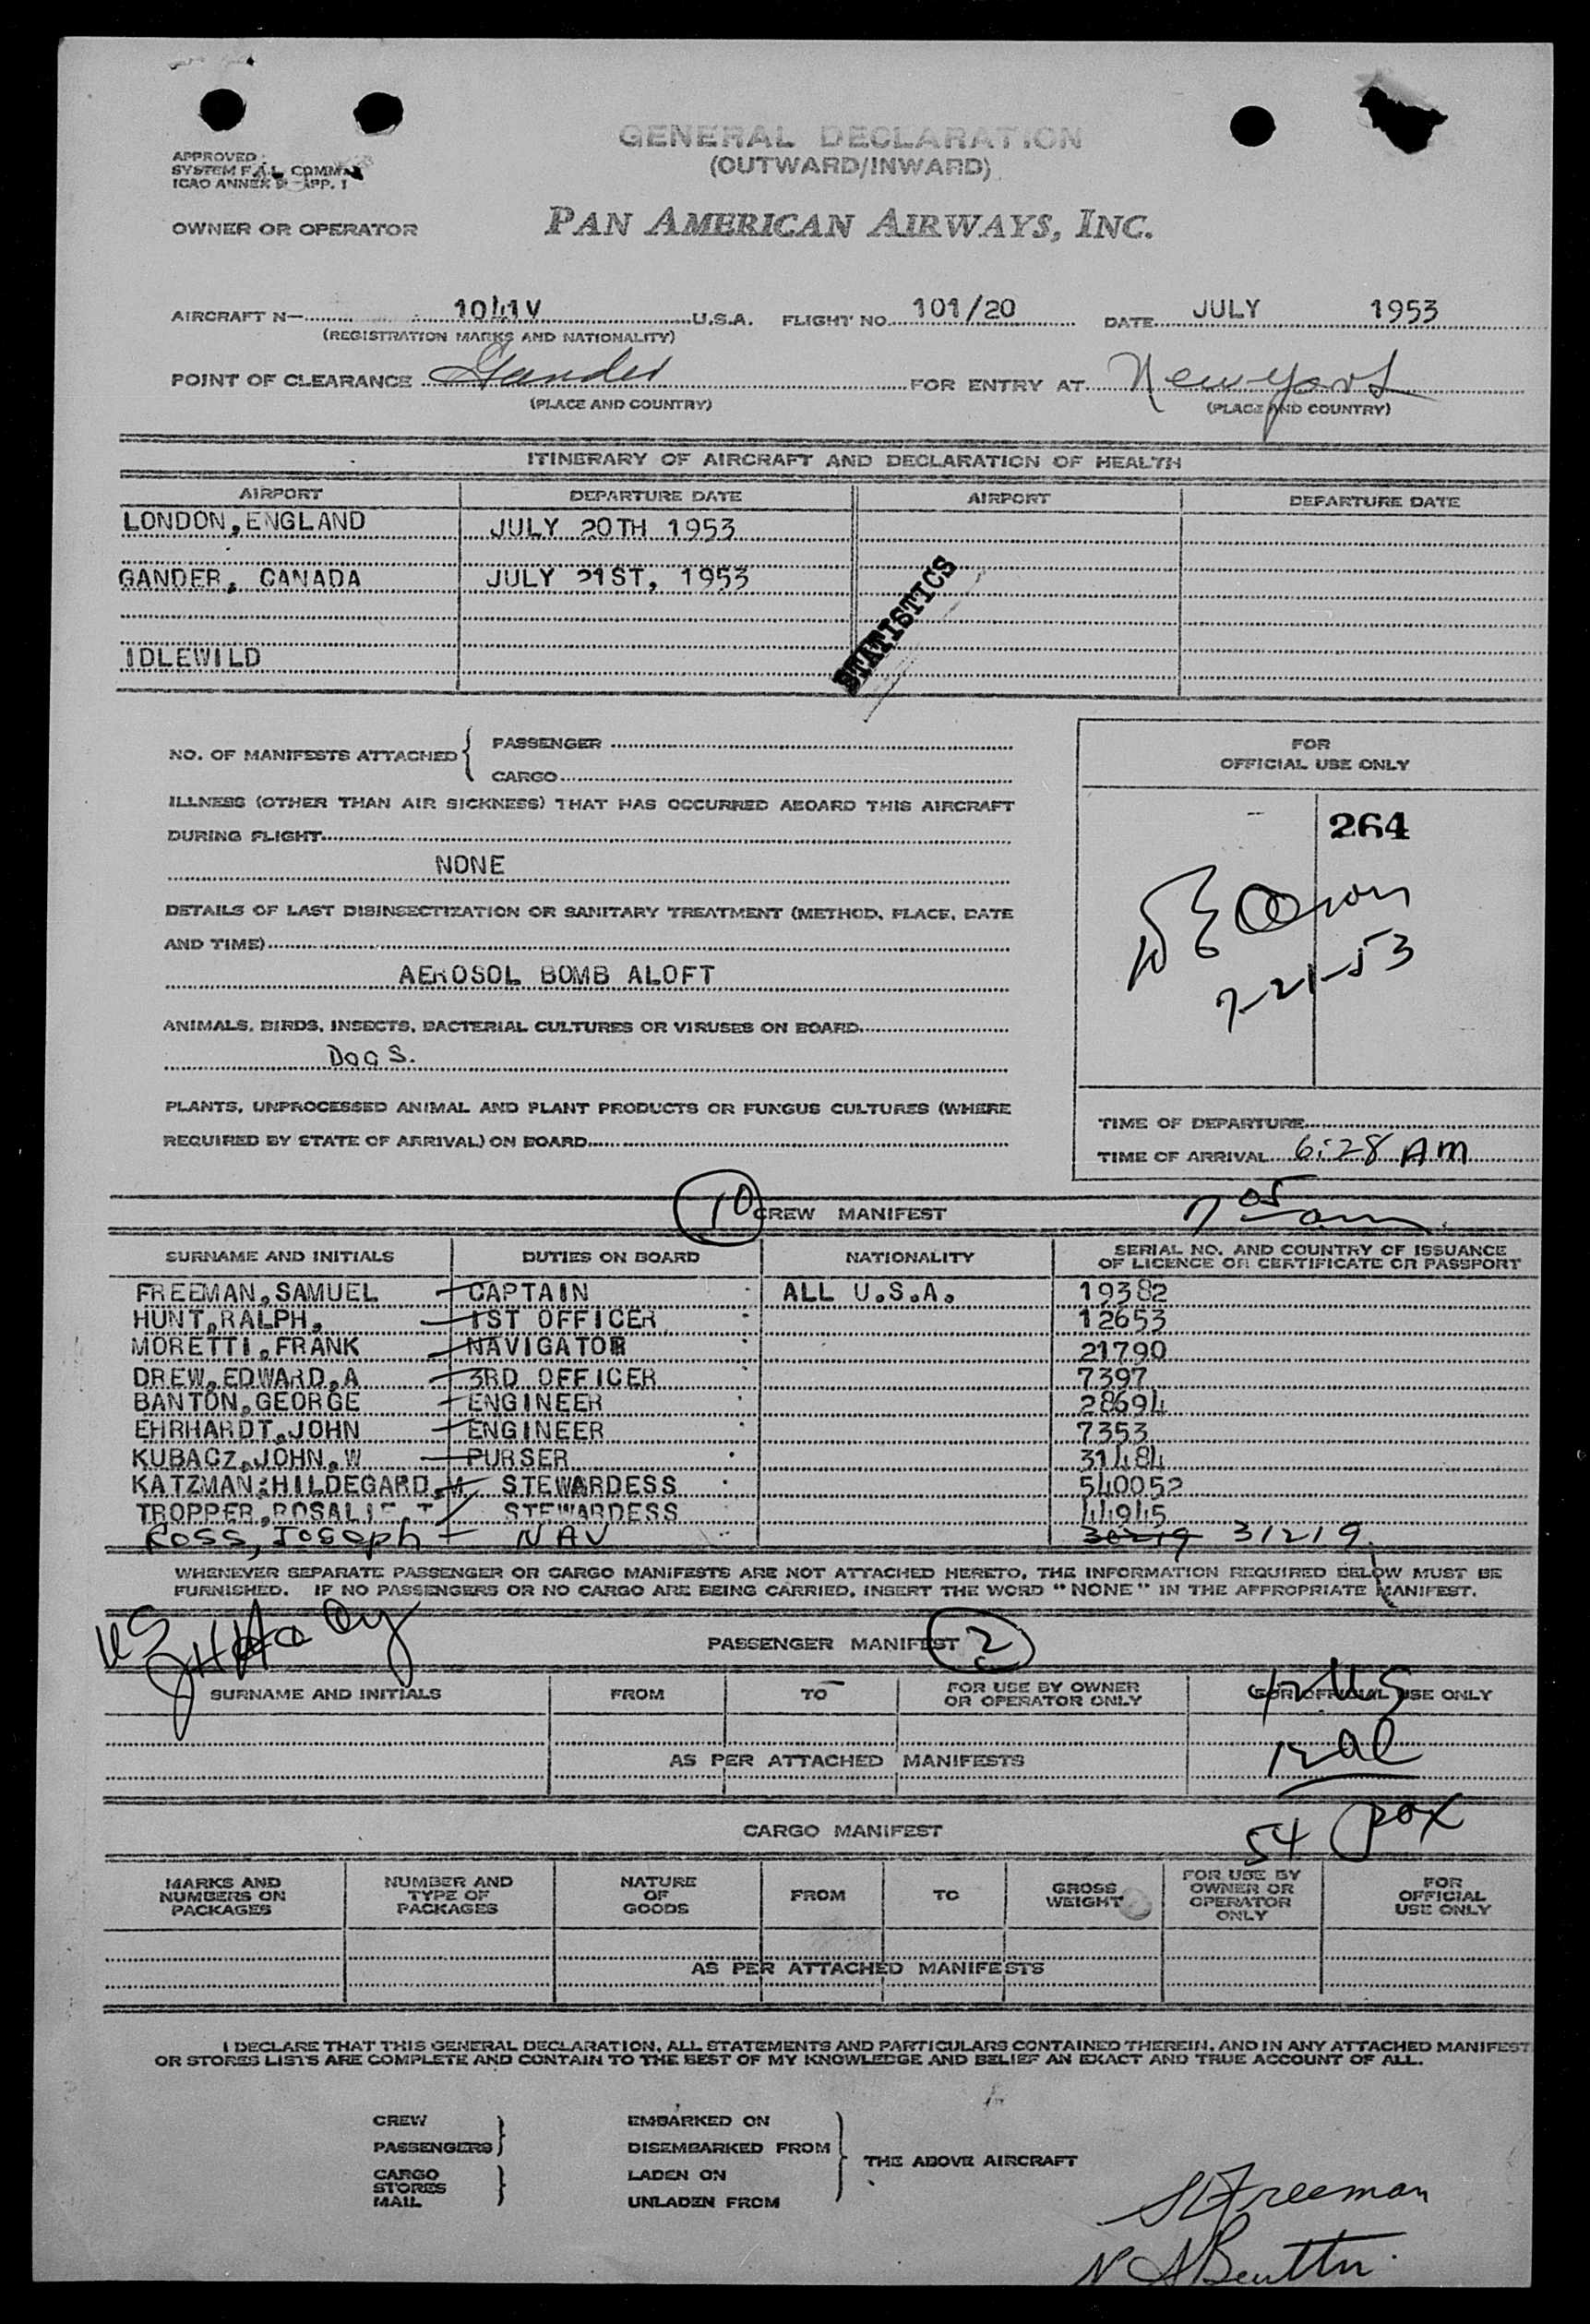 GENERAL DECLARATION
(OUTWARD/INWARD)
APPROVED
SYSTEM F.A.L. COMM.
ICAO ANNEX 9 - APP. 1
OWNER OR OPERATOR PAN AMERICAN AIRWAYS, INC.
AIRCRAFT N- 1041V U.S.A. FLIGHT NO. 101/20 DATE JULY 1953
(REGISTRATION MARKS AND NATIONALITY)
POINT OF CLEARANCE Gander FOR ENTRY AT New York
(PLACE AND COUNTRY) (PLACE AND COUNTRY)
ITINERARY OF AIRCRAFT AND DECLARATION OF HEALTH
AIRPORT DEPARTURE DATE AIRPORT DEPARTURE DATE
LONDON, ENGLAND JULY 20TH 1953
GANDER, CANADA JULY 21ST, 1953
STATISTICS
IDLEWILD
NO. OF MANIFESTS ATTACHED { PASSENGER
CARGO
ILLNESS (OTHER THAN AIR SICKNESS) THAT HAS OCCURRED ABOARD THIS AIRCRAFT
DURING FLIGHT
NONE
DETAILS OF LAST DISINSECTIZATION OR SANITARY TREATMENT (METHOD, PLACE, DATE
AND TIME)
AEROSOL BOMB ALOFT
ANIMALS, BIRDS, INSECTS, BACTERIAL CULTURES OR VIRUSES ON BOARD
DOGS.
PLANTS, UNPROCESSED ANIMAL AND PLANT PRODUCTS OR FUNGUS CULTURES (WHERE
REQUIRED BY STATE OF ARRIVAL) ON BOARD
FOR
OFFICIAL USE ONLY
264
7-21-53
TIME OF DEPARTURE
TIME OF ARRIVAL 6:28 AM
7 05 am
10 CREW MANIFEST
SURNAME AND INITIALS DUTIES ON BOARD NATIONALITY SERIAL NO. AND COUNTRY OF ISSUANCE
OF LICENCE OR CERTIFICATE OR PASSPORT
FREEMAN, SAMUEL CAPTAIN ALL U.S.A. 19382
HUNT, RALPH, 1ST OFFICER 12653
MORETTI, FRANK NAVIGATOR 21790
DREW, EDWARD, A 3RD OFFICER 7397
BANTON, GEORGE ENGINEER 28694
EHRHARDT, JOHN ENGINEER 7353
KUBACZ, JOHN, W PURSER 31484
KATZMAN, HILDEGARD, M STEWARDESS 540052
TROPPER, ROSALIE, T STEWARDESS 44945
Ross, Joseph NAV 30219 31219
WHENEVER SEPARATE PASSENGER OR CARGO MANIFESTS ARE NOT ATTACHED HERETO, THE INFORMATION REQUIRED BELOW MUST BE
FURNISHED. IF NO PASSENGERS OR NO CARGO ARE BEING CARRIED, INSERT THE WORD "NONE" IN THE APPROPRIATE MANIFEST.
PASSENGER MANIFEST 2
SURNAME AND INITIALS FROM TO FOR USE BY OWNER
OR OPERATOR ONLY FOR OFFICIAL USE ONLY
42 US
12 al
AS PER ATTACHED MANIFESTS
54 pax
CARGO MANIFEST
MARKS AND
NUMBERS ON
PACKAGES
NUMBER AND
TYPE OF
PACKAGES
NATURE
OF
GOODS
FROM
TO
GROSS
WEIGHT
FOR USE BY
OWNER OR
OPERATOR
ONLY
FOR
OFFICIAL
USE ONLY
AS PER ATTACHED MANIFESTS
I DECLARE THAT THIS GENERAL DECLARATION, ALL STATEMENTS AND PARTICULARS CONTAINED THEREIN, AND IN ANY ATTACHED MANIFEST
OR STORES LISTS ARE COMPLETE AND CONTAIN TO THE BEST OF MY KNOWLEDGE AND BELIEF AN EXACT AND TRUE ACCOUNT OF ALL.
CREW
PASSENGERS
CARGO
STORES
MAIL
EMBARKED ON
DISEMBARKED FROM
LADEN ON
UNLADEN FROM
THE ABOVE AIRCRAFT
S Freeman